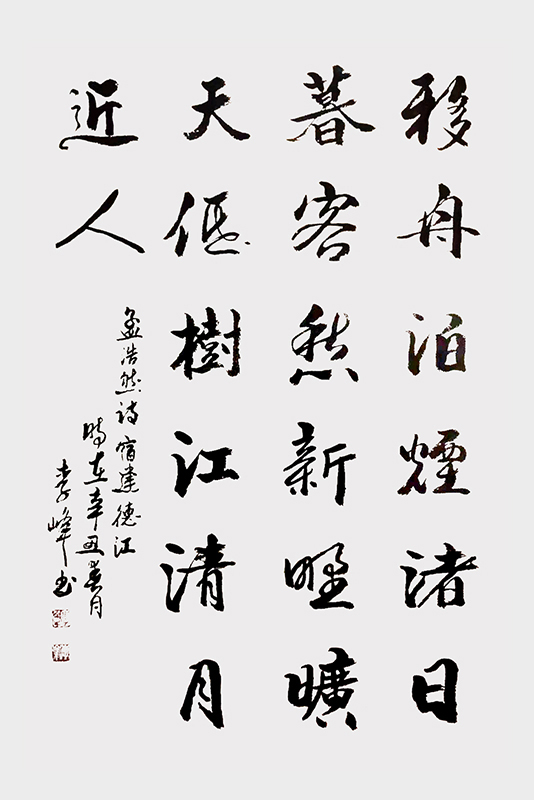 移舟泊煙渚日
暮客愁新野曠
天低樹江清月
近人
孟浩然詩宿建德江
時在辛丑春月
李峰书